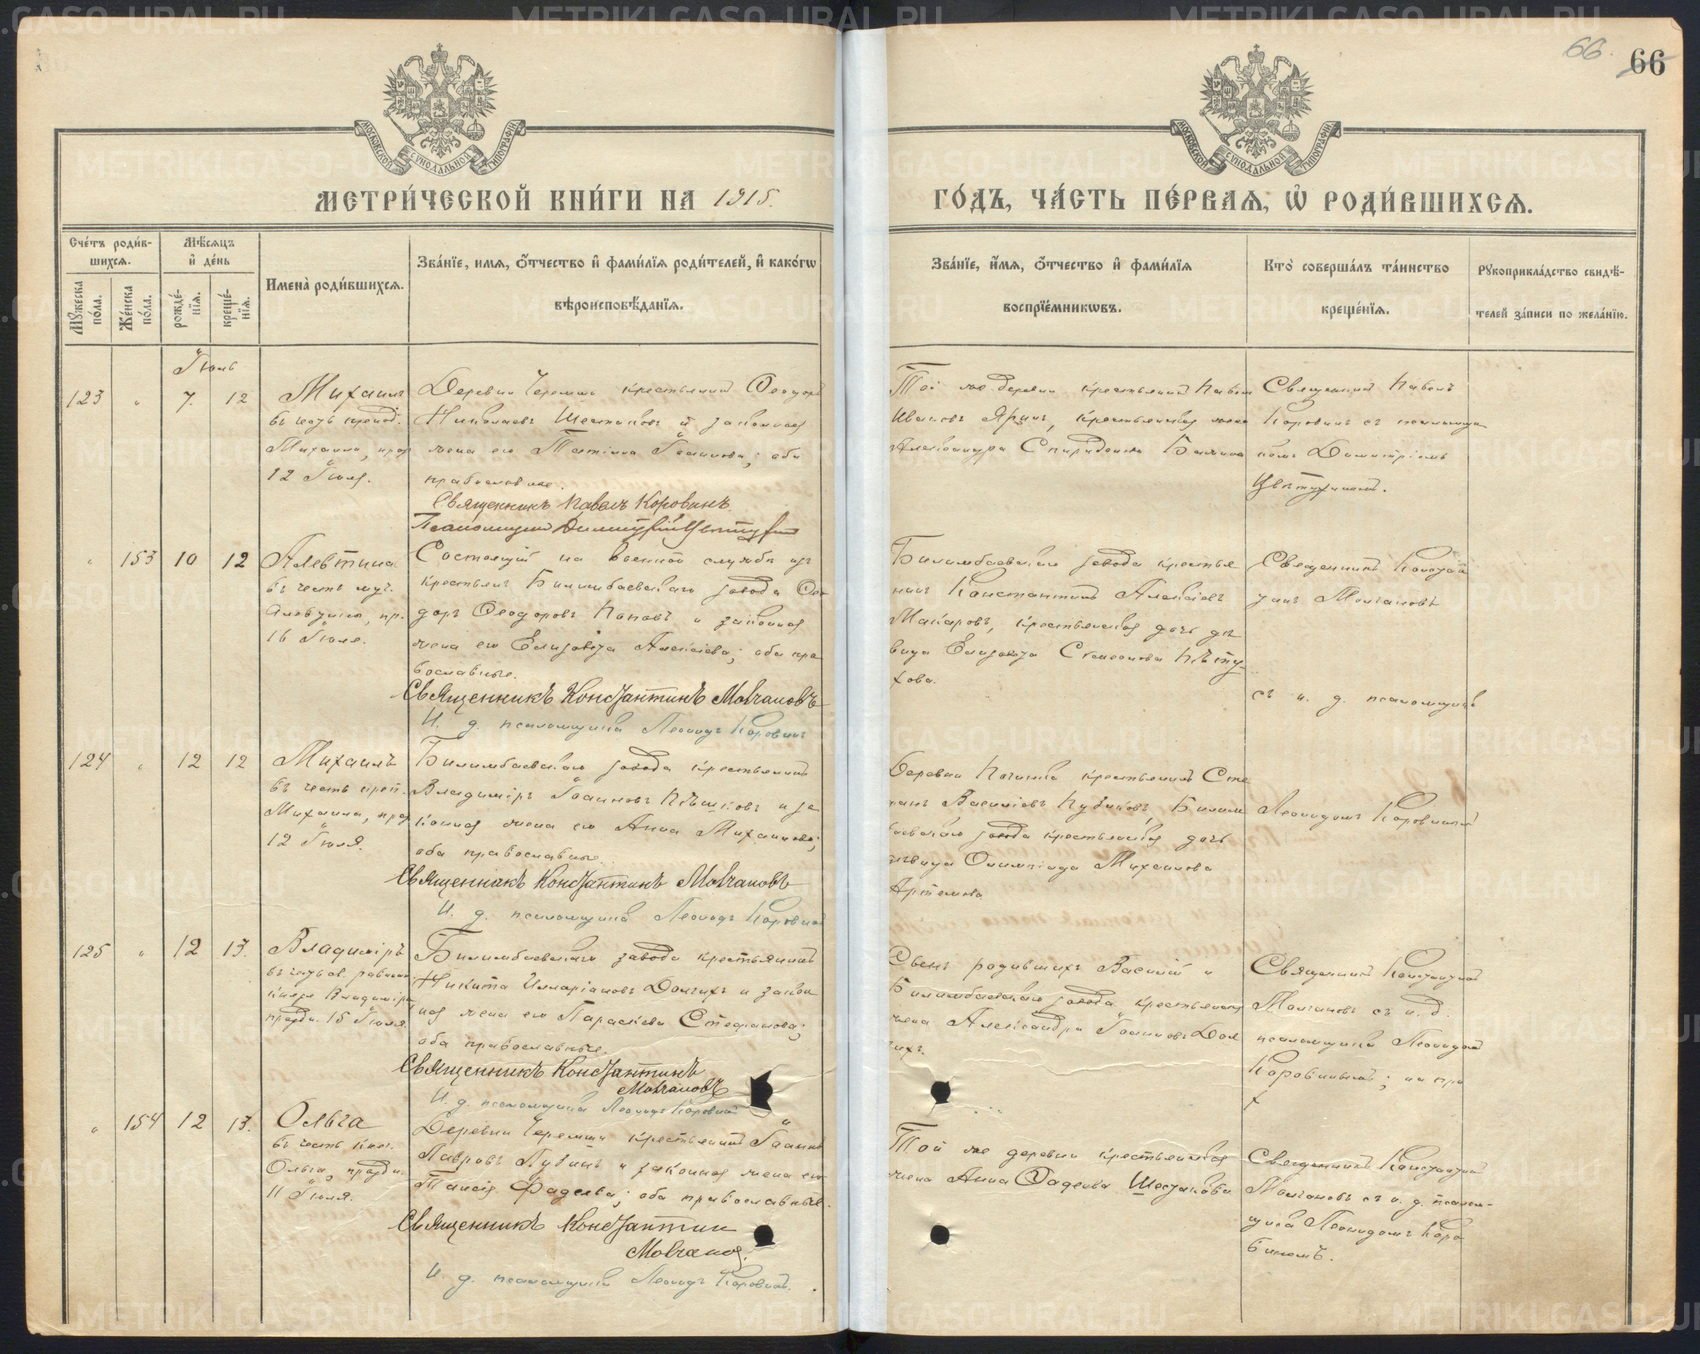 66. 66
МОСКОВСКОЙ СѴНОДАЛЬНОЙ ТИПОГРАФІИ
МОСКОВСКОЙ СѴНОДАЛЬНОЙ ТИПОГРАФІИ
МЕТРИ́ЧЕСКОЙ КНИ́ГИ НА 1915.
ГО́ДЪ, ЧА́СТЬ ПЕ́РВАЯ, Ѡ҆ РОДИ́ВШИХСЯ.
Сче́тъ роди́в-
шихся.
Му́жеска по́ла.
Же́нска по́ла.
Мѣ́сяцъ
и҆ де́нь
рожде́-
нїя.
креще́-
нїя.
Имена̀ роди́вшихся.
Зва́нїе, имя, ѻ҆́тчество и҆ фами́лїя роди́телей, и҆ како́гѡ
вѣроисповѣ́данїя.
Зва́нїе, и҆́мя, ѻ҆́тчество и҆ фами́лїя
воспрїе́мникѡвъ.
Кто̀ соверша́лъ та́инство
креще́нїя.
Рукоприкла́дство свидѣ́-
телей за́писи по жела́нїю.
Іюль
123 " 7. 12
Михаилъ
въ честь препод.
Михаила, праз.
12 Іюля.
Деревни Черемши крестьянинъ Ѳеодоръ
Николаевъ Шестаковъ и законная
жена его Іоаннова; оба
православные.
Священникъ Павелъ Коровинъ.
Псаломщикъ Димитрій
Той же деревни крестьянинъ Павелъ
Ивановъ крестьянская жена
Александра Спиридонова
Священникъ Павелъ
Коровинъ съ псаломщи
комъ Димитріемъ
" 153 10 12
Алевтина
въ честь муч.
Алевтины, пр.
16 Іюля.
Состоящій на военной службѣ изъ
крестьянъ Билимбаевскаго завода Ѳео
доръ Ѳеодоровъ Поповъ и законная
жена его Елизавета Алексіева; оба пра
вославные.
Священникъ Константинъ Молчановъ
И. д. псаломщика Леонидъ Коровинъ
Билимбаевскаго завода крестья
нинъ Константинъ Алексіевъ
Макаровъ, крестьянская дочь дѣ
вица Елизавета Симеонова Пѣту-
хова.
Священникъ Констан
тинъ Молчановъ
съ и. д. псаломщика
124 " 12 12
Михаилъ
въ честь преп.
Михаила, праз.
12 Іюля.
Билимбаевскаго завода крестьянинъ
Владиміръ Іоанновъ Пѣшковъ и за
конная жена его Анна Михаилова;
оба православные.
Священникъ Константинъ Молчановъ
И. д. псаломщика Леонидъ Коровинъ
Деревни крестьянинъ Сте
панъ Василіевъ Билим
баевскаго завода крестьянская дочь
дѣвица Олимпіада Михаилова
Артемова
Леонидомъ Коровинымъ
125 " 12 13.
Владиміръ
въ честь св. равноап.
князя Владиміра,
праздн. 15 Іюля.
Билимбаевскаго завода крестьянинъ
Никита Илларіоновъ Долгихъ и закон
ная жена его Параскева Стефанова;
оба православные.
Священникъ Константинъ
Молчановъ
И. д. псаломщика Леонидъ Коровинъ
родившихъ Василій и
Билимбаевскаго завода крестьянская
жена Александра Іоаннова Дол
гихъ.
Священникъ Константинъ
Молчановъ съ и. д.
псаломщика Леонидомъ
Коровинымъ;
" 154 12 13.
Ольга
въ честь княг.
Ольги, праздн.
11 Іюля.
Деревни Черемши крестьянинъ Іоаннъ
Лавровъ и законная жена его
Таисія Фадеева; оба православные.
Священникъ Константин
Молчанов.
И. д. псаломщика Леонидъ Коровинъ.
Той же деревни крестьянская
жена Анна Фадеева Шестакова
Священникъ Константинъ
Молчановъ съ и. д. псалом-
щика Леонидомъ Коро
винымъ.